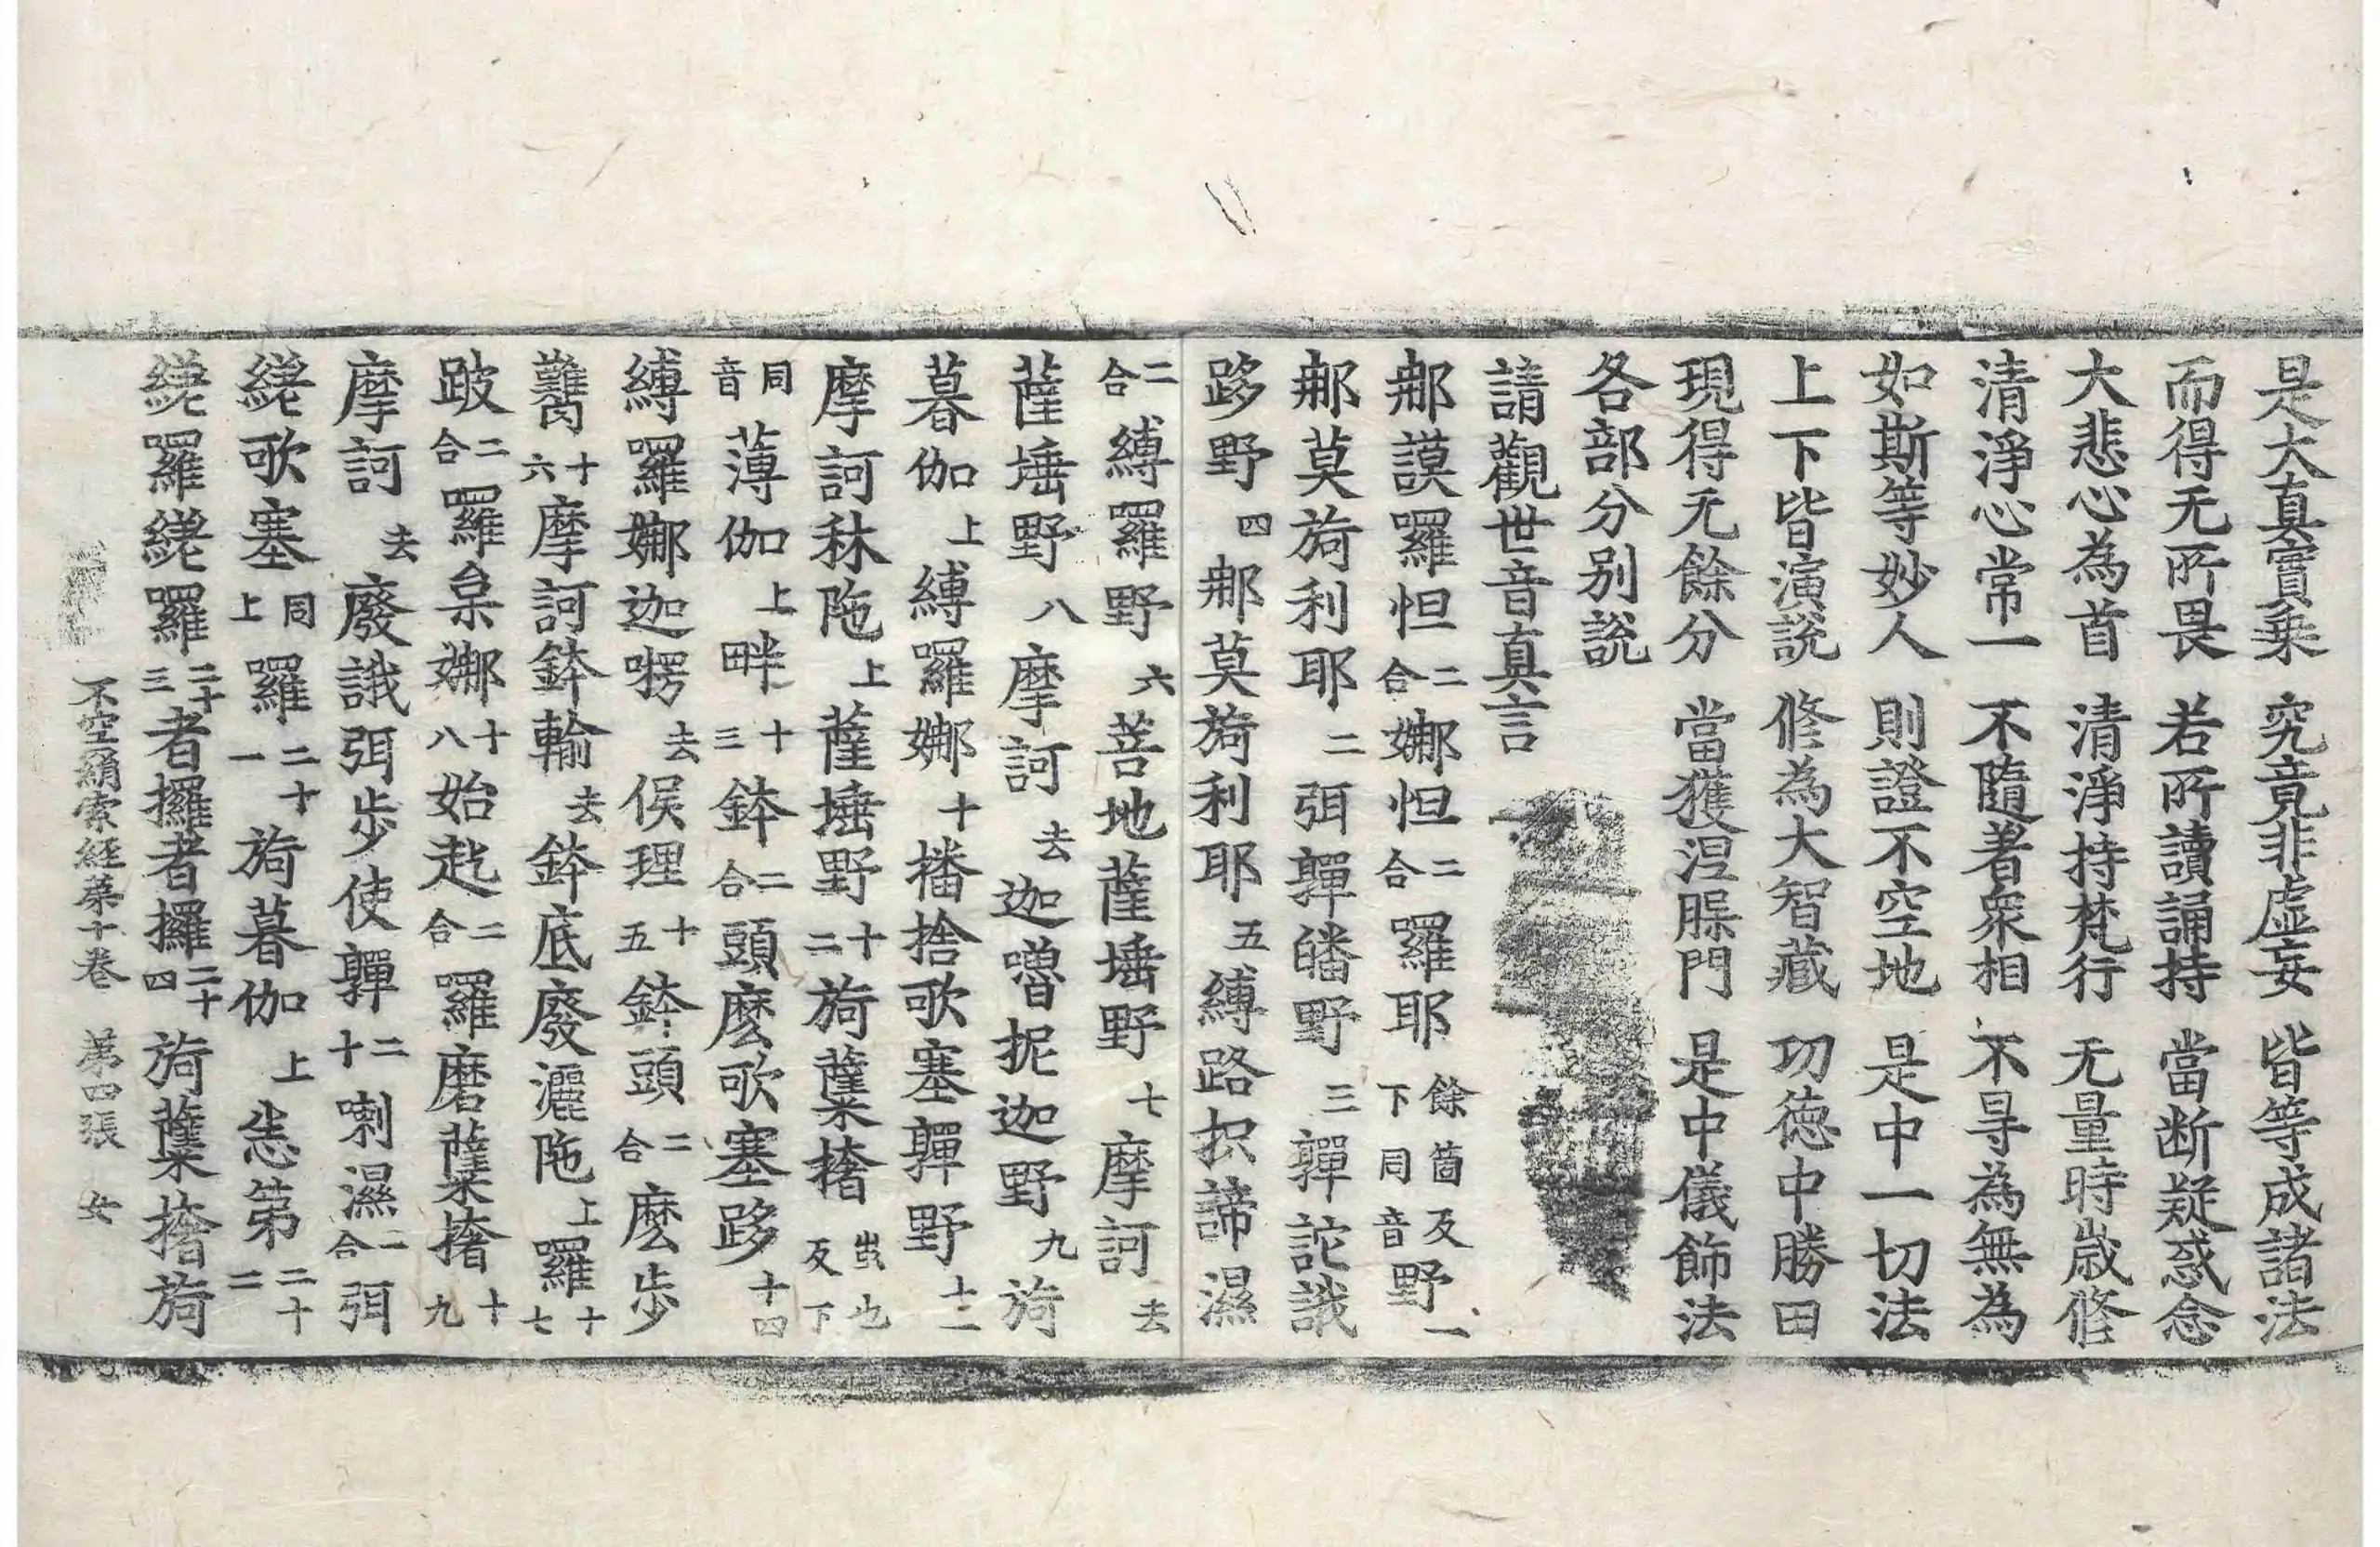 是大真實乗 究竟非虛妄 皆等成諸法
而得无所畏 若所讀誦持 當断疑惑念
大悲心為首 清淨持梵行 无量時歲修
清淨心常一 不隨著衆相 不㝵為無為
如斯等妙人 則證不空地 是中一切法
上下皆演說 修為大智藏 功德中勝田
現得无餘分 當獲涅脲門 是中儀飾法
各部分別說
請觀世音真言
𨚗謨囉怛二合娜怛二合囉耶餘箇反下同音野一
𨚗莫旖利耶二弭嚲皤野三嚲詑誐
跢野四𨚗莫旖利耶五縛路抧諦濕
二合縛囉野六菩地薩埵野七摩訶去
薩埵野八摩訶去迦嚕抳迦野九旖
暮伽上縛囉娜十播捨歌塞嚲野十一
摩訶秣陁上薩埵野十二旖蘖撦蚩也反下
同音薄伽上畔十三鉢二合頭麽歌塞跢十四
縛囉娜迦㗚去俟理十五鉢頭二合麽步
𩥇十六摩訶鉢輸去鉢底廢灑陁上囉十七
跛二合囉枲娜十八始訖二合囉磨蘖撦十九
摩訶去廢誐弭步使嚲二十喇濕二合弭
繞歌塞同上囉二十一旖暮伽上恙第二十二
繞囉繞囉二十三者攞者攞二十四旖蘖撦旖
不空羂索經苐十卷 苐四張 女